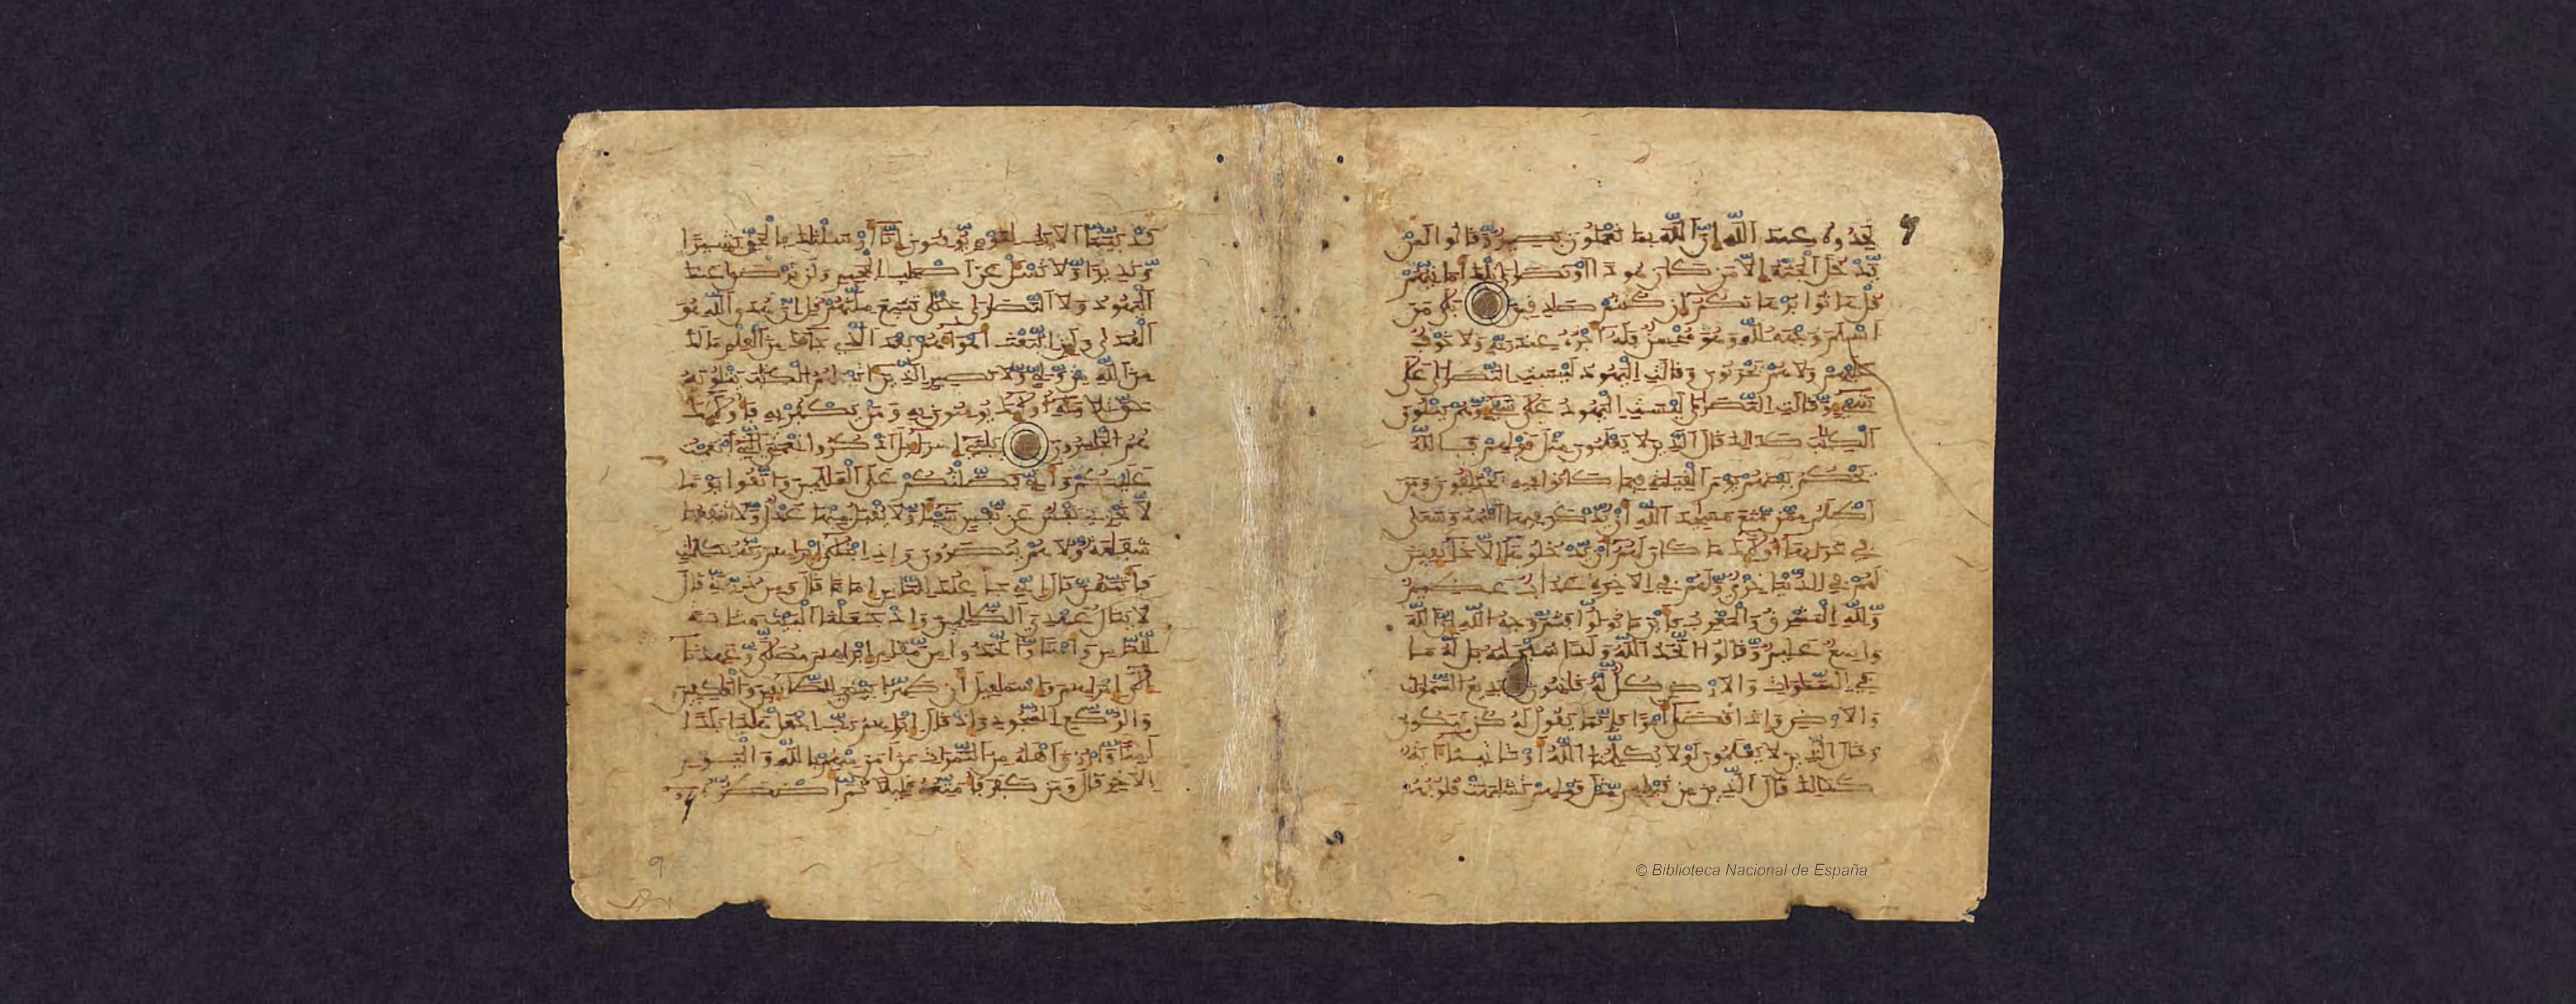 تجدوه عند الله ان الله بما تعملون بصير وقالوا لن
يدخل الجنة الا من كان هودا او نصارى تلك امانيهم
قل هاتوا برهانكم ان كنتم صدقين بلى من
اسلم وجهه لله وهو محسن فله اجره عند ربه ولا خوف
عليهم ولا هم يحزنون وقالت اليهود ليست النصرى على
شيء وقالت النصرى ليست اليهود على شيء وهم يتلون
الكتب كذلك قال الذين لا يعلمون مثل قولهم فالله
يحكم بينهم يوم القيمة فيما كانوا فيه يختلفون ومن
اظلم ممن منع مسجد الله ان يذكر فيها اسمه وسعى
في خرابها اولئك ما كان لهم ان يدخلوها الا خائفين
لهم في الدنيا خزي ولهم في الاخرة عذاب عظيم
ولله المشرق والمغرب فاينما تولوا فثم وجه الله ان الله
واسع عليم وقالوا اتخذ الله ولدا سبحنه بل له ما
في السموات والارض كل له قنتون بديع السموات
والارض واذا قضى امرا فانما يقول له كن فيكون
وقال الذين لا يعلمون لولا يكلمنا الله او تاتينا اية
كذلك قال الذين من قبلهم مثل قولهم تشبهت قلوبهم
قد بينا الايت لقوم يوقنون انا ارسلنك بالحق بشيرا
ونذيرا ولا تسل عن اصحب الجحيم ولن ترضى عنك
اليهود ولا النصرى حتى تتبع ملتهم قل ان هدى الله هو
الهدى ولئن اتبعت اهواءهم بعد الذي جاءك من العلم ما لك
من الله من ولي ولا نصير الذين اتينهم الكتب يتلونه
حق تلاوته اولئك يومنون به ومن يكفر به فاولئك
هم الخسرون يبني اسراءيل اذكروا نعمتي التي انعمت
عليكم واني فضلتكم على العلمين واتقوا يوما
لا تجزي نفس عن نفس شيئا ولا يقبل منها عدل ولا تنفعها
شفعة ولا هم ينصرون واذ ابتلى ابرهيم ربه بكلمت
فاتمهن قال اني جاعلك للناس اماما قال ومن ذريتي قال
لا ينال عهدي الظلمين واذ جعلنا البيت مثابة
للناس وامنا واتخذوا من مقام ابرهيم مصلى وعهدنا
الى ابرهيم واسمعيل ان طهرا بيتي للطائفين والعكفين
والركع السجود واذ قال ابرهيم رب اجعل هذا بلدا
امنا وارزق اهله من الثمرات من امن منهم بالله واليوم
الاخر قال ومن كفر فامتعه قليلا ثم اضطره
9
© Biblioteca Nacional de España